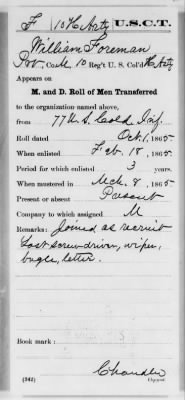 F 10 H Arty U.S.C.T.
William Foreman
Pvt Co. M, 10 Reg't U. S. Col'd H Arty
Appears on
M. and D. Roll of Men Transferred
to the organization named above,
from 77 U S Cold Inf.
Roll dated Oct. 1, 1865.
When enlisted Feb. 18, 1865.
Period for which enlisted 3 years.
When mustered in Mch. 8, 1865.
Present or absent Present
Company to which assigned M
Remarks: Joined as recruit
Lost screw driver, wiper,
bugle, letter.
Book mark:
Chandler
(342) Copyist.